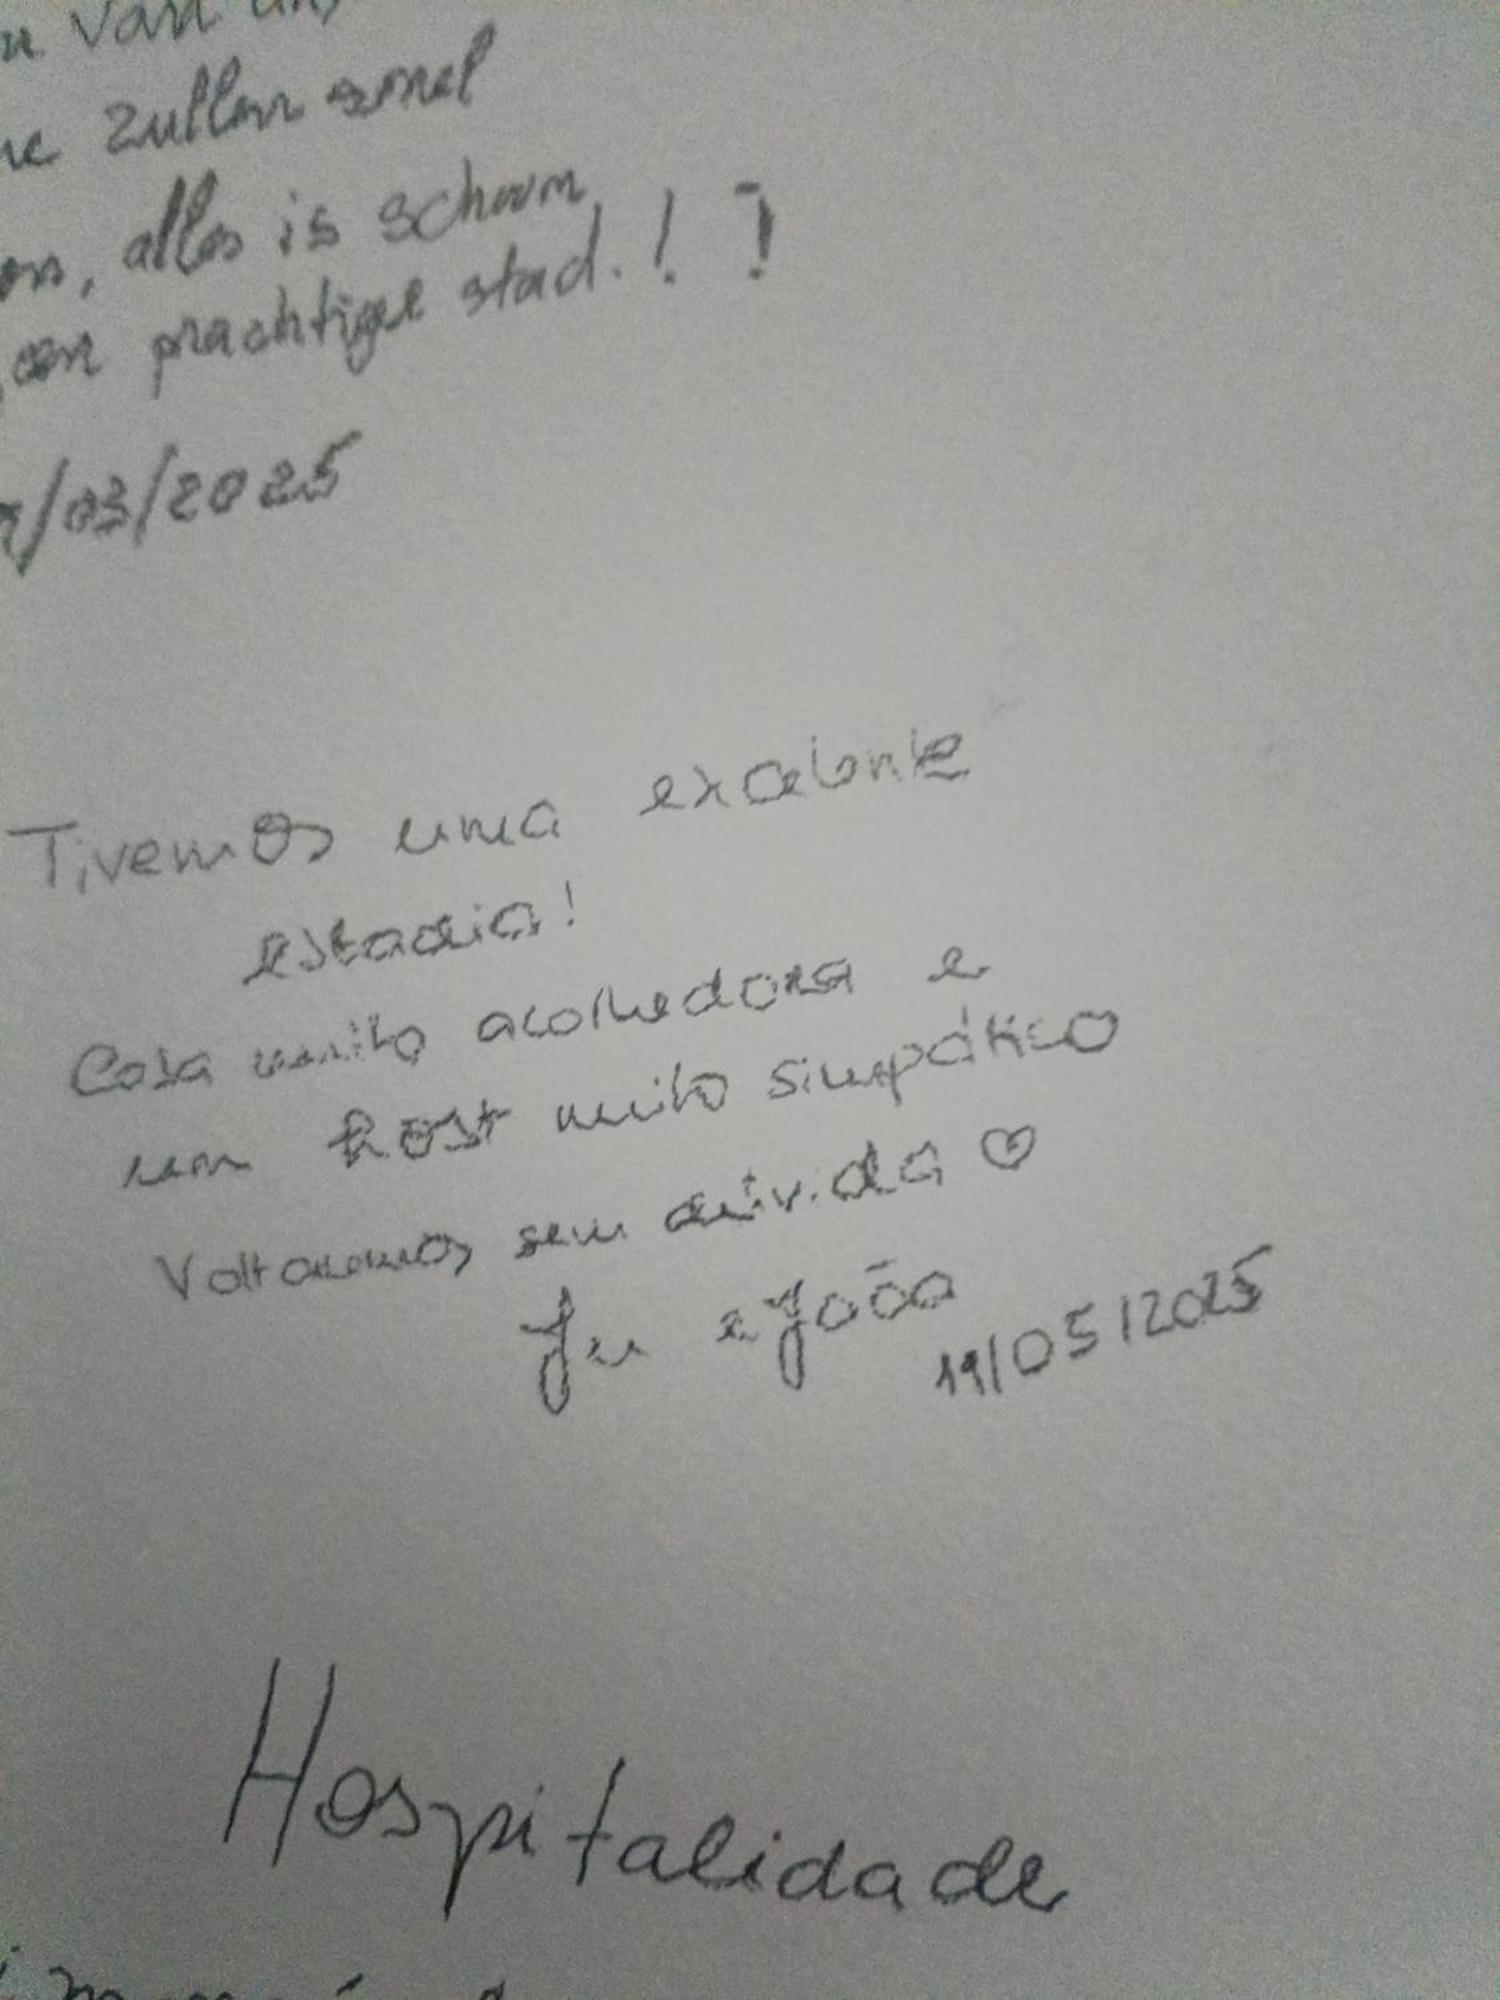 van
zullen snel
, alles is schoon
een prachtige stad.!!
/03/2025
Tivemos uma excelente
estadia!
Casa muito acolhedora e
um host muito simpático
Voltaremos sem dúvida ♡
Ju e João
19/05/2025
Hospitalidade